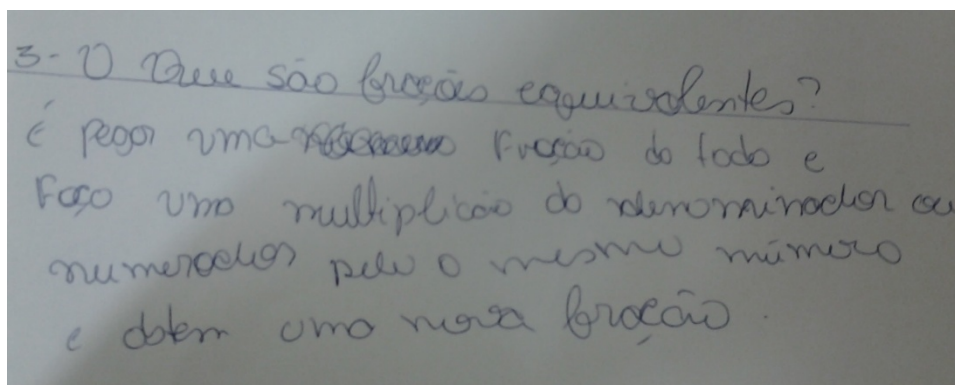 3- O Que são fração equivalentes?
é pegar uma Fração do todo e
Faço uma multiplicão do denominador ou
numerador pelo o mesmo número
e dotem uma nova fração.